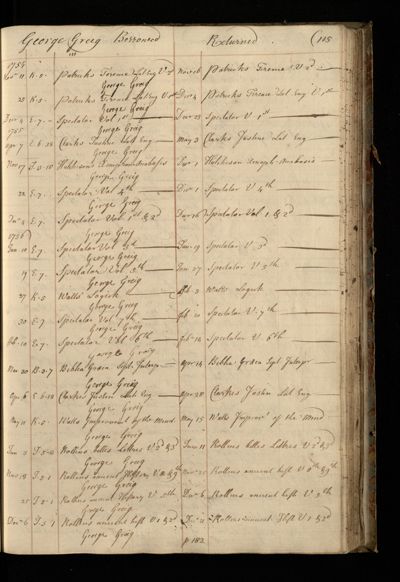 George Greig Borrowed Returned (115
1754
Nov 11 K.5. Patricks Terence Lat Eng V 2d Nov 26 Patricks Terence V 2d
George Greig
25 K.5. Patricks Terence Lat Eng V 1st Dec 4 Patricks Terence Lat Eng V 1st
George Greig
Dec 4 E.7. Spectator Vol 1st Spectator V. 1st
George Greig
1755
Apr 7 E.6.28 Clarks Justin Lat Eng May 3 Clarks Justin Lat Eng
George Greig
Nov 17 Hutchison
George Greig
22 E.7. Spectator Vol 4th Dec 1 Spectator V 4th
George Greig
Dec 4 E.7. Spectator Vol 1st & 2d Dec 26 Spectator Vol 1 & 2d
George Greig
1756
Jan 10 E.7. Spectator Vol 3d Jan 19 Spectator V. 3d
George Greig
19 E.7. Spectator Vol 5th Jan 27 Spectator V 5th
George Greig
27 K.5 Watts' Logick Feb 2 Watts Logick
George Greig
30 E.7. Spectator Vol 7th Feb 10 Spectator V. 7th
George Greig
Feb 10 E.7. Spectator Vol 6th Feb 14 Spectator V 6th
George Greig
Mar 20 B.2.7 Biblia Graeca Sept. Interpr Apr 14 Biblia Graeca Spt Interpr
George Greig
Apr 6 E.6.28 Clarkes Justin Lat. Eng Apr 28 Clarkes Justin Lat Eng
George Greig
May 11 K.5 Watts Improvement of the Mind May 15 Watts Improvt of the Mind
George Greig
Jun 2 Rollins belles Lettres V 2 & 3d Jun 11 Rollins belles Lettres V 2 & 3d
George Greig
Nov 18 I.5.1 Rollins ancient History V 8 & 9th Nov 25 Rollins ancient hist V 8th & 9th
George Greig
25 I.5.1 Rollins ancient History V. 5th Dec 6 Rollins ancient hist V 5th
George Greig
Dec 6 I.5.1 Rollins ancient hist V 1 & 2d Rollins ancient Hist V 1 & 2d
George Greig
p 182